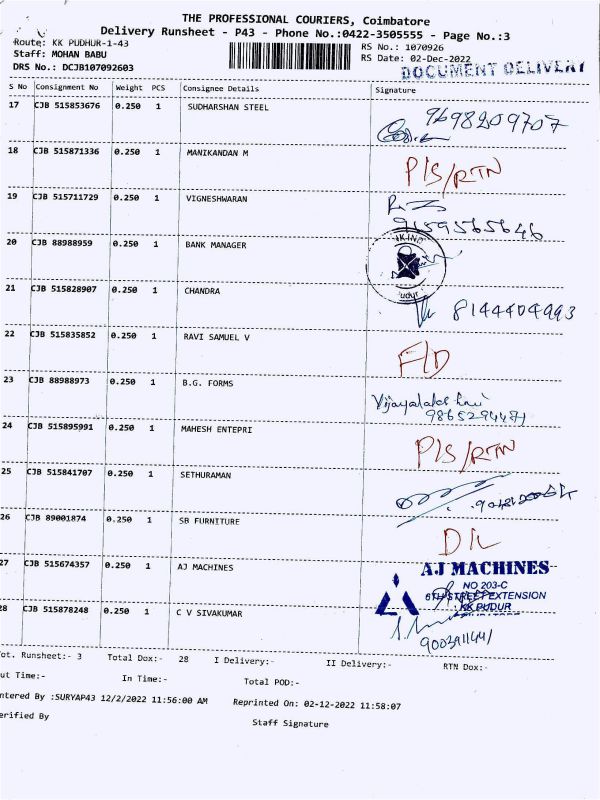 THE PROFESSIONAL COURIERS, Coimbatore
Delivery Runsheet - P43 - Phone No.:0422-3505555 - Page No.:3
Route: KK PUDHUR-1-43
RS No.: 1070926
Staff: MOHAN BABU
RS Date: 02-Dec-2022
DRS No.: DCJB107092603
DOCUMENT DELIVERY
S No Consignment No Weight PCS Consignee Details Signature
17 CJB 515853676 0.250 1 SUDHARSHAN STEEL 9698209707
18 CJB 515871336 0.250 1 MANIKANDAN M P/S/RTN
19 CJB 515711729 0.250 1 VIGNESHWARAN
9159565646
20 CJB 88988959 0.250 1 BANK MANAGER
21 CJB 515828907 0.250 1 CHANDRA 8144404993
22 CJB 515835852 0.250 1 RAVI SAMUEL V F/D
23 CJB 88988973 0.250 1 B.G. FORMS
24 CJB 515895991 0.250 1 MAHESH ENTEPRI P/S/RTN
25 CJB 515841707 0.250 1 SETHURAMAN
26 CJB 89001874 0.250 1 SB FURNITURE D/L
27 CJB 515674357 0.250 1 AJ MACHINES AJ MACHINES
NO 203-C
6TH STREET EXTENSION
KK PUDUR
28 CJB 515878248 0.250 1 C V SIVAKUMAR
ot. Runsheet:- 3 Total Dox:- 28 I Delivery:- II Delivery:- RTN Dox:-
ut Time:- In Time:- Total POD:-
ntered By :SURYAP43 12/2/2022 11:56:00 AM Reprinted On: 02-12-2022 11:58:07
erified By Staff Signature